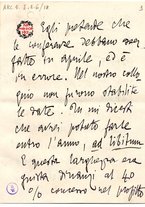 Egli pretende che
le conferenze debbano esser
fatte in aprile, ed è
in errore. Nel nostro collo-
quio non furono stabilite
le date. Tu mi dicesti
che avrei potuto farle
entro l'anno, ad libitum
E questa larghezza era
giusta dinanzi al 40
0/0 concesso nel profitto